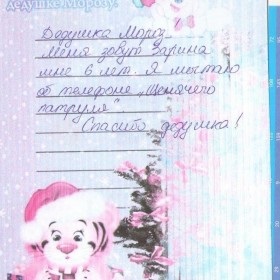 дедушке Морозу
Дедушка Мороз
Меня зовут Зарина
мне 6 лет. Я мечтаю
о телефоне „Щенячего
патруля".
Спасибо дедушка!